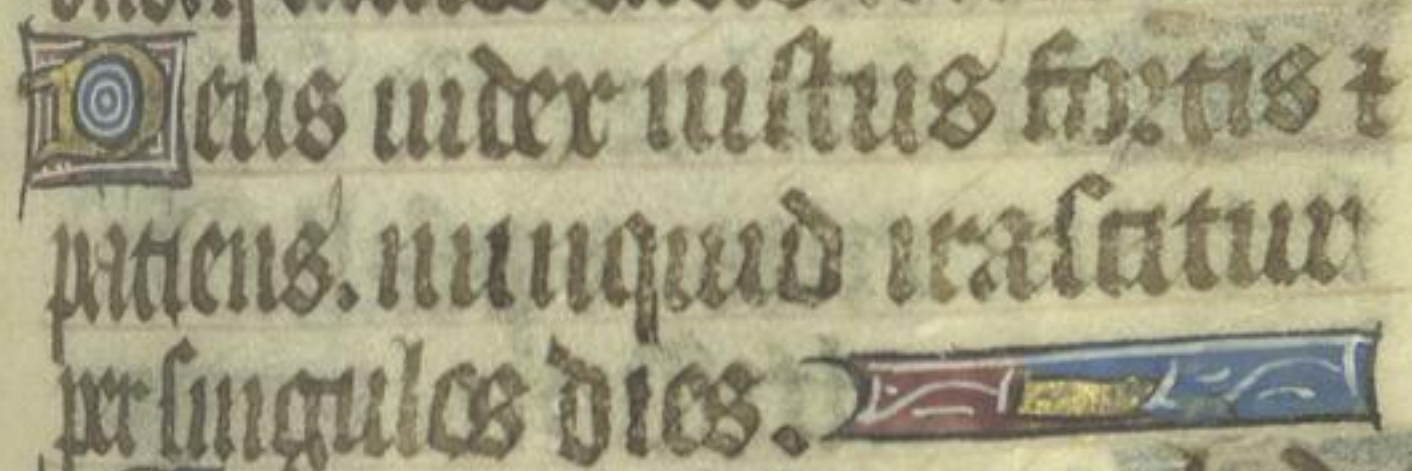 Deus iudex iustus fortis et
patiens. nunquid irascitur
per singulos dies.